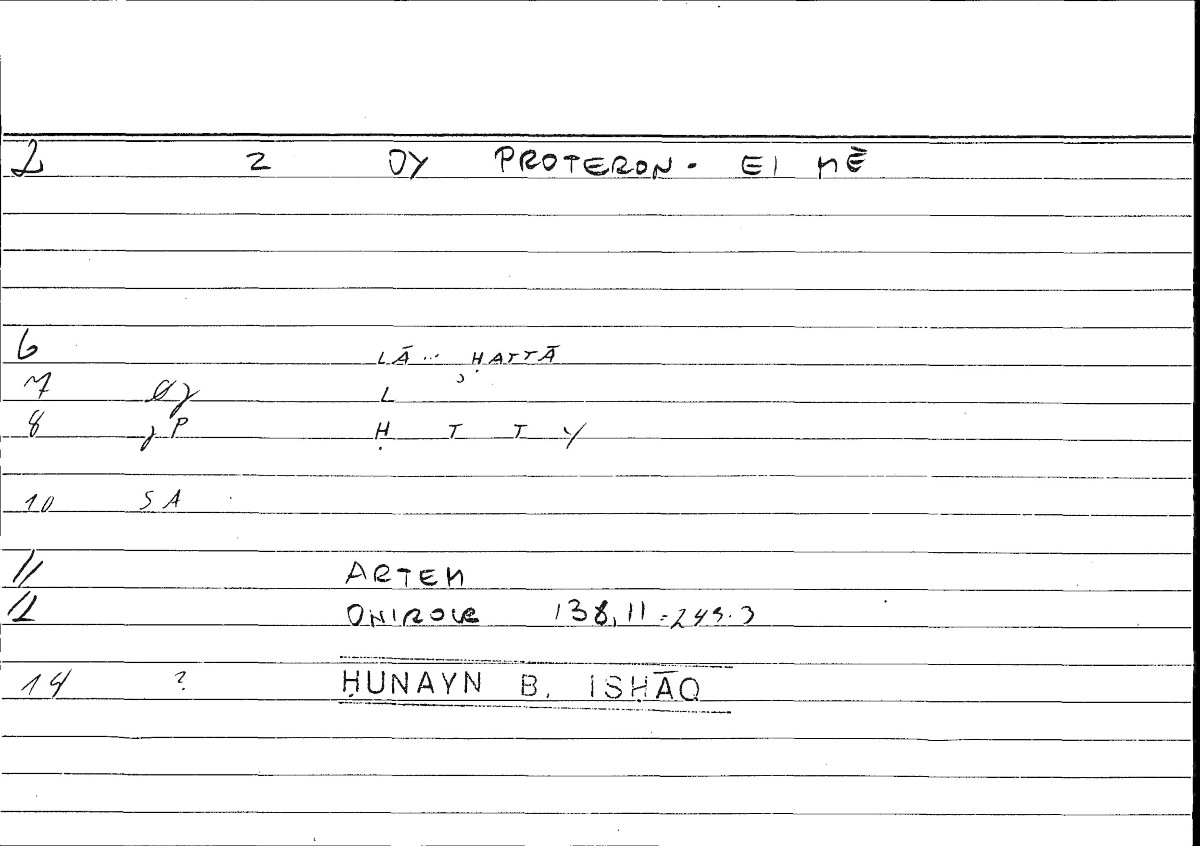 2 2 OY PROTERON. EI MĒ
6 LĀ... ḤATTĀ
7 L ʾ
8 γP Ḥ T T Y
10 SA
11 ARTEM
12 ONIROCR 138,11 = 249.3
14 ? ḤUNAYN B. ISḤĀQ